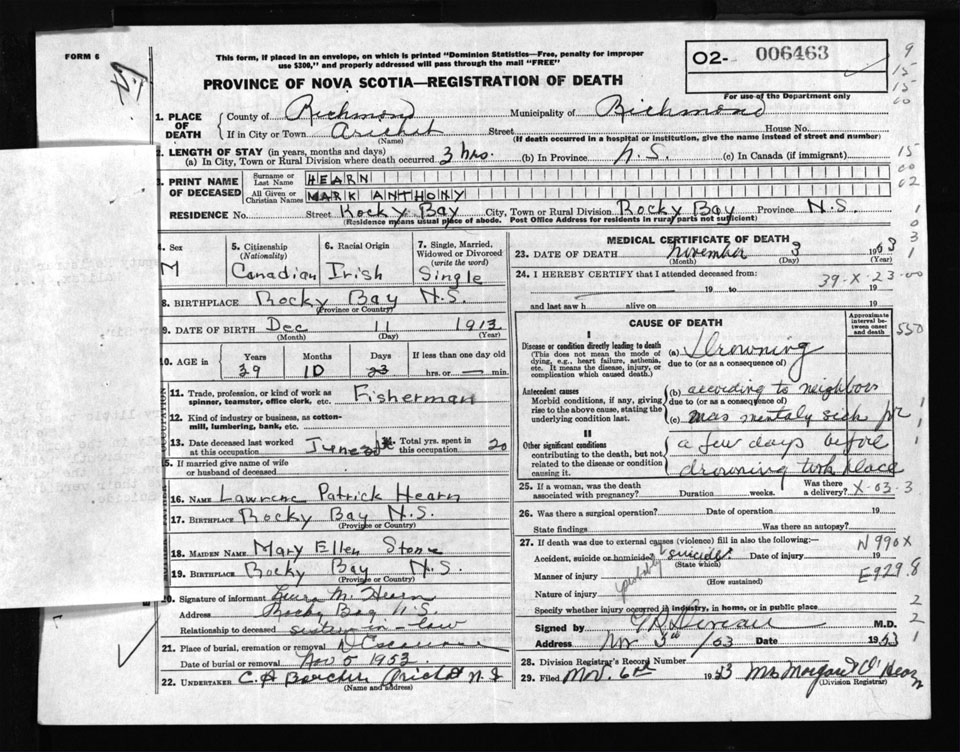 FORM 6
This form, if placed in an envelope, on which is printed "Dominion Statistics—Free, penalty for improper
use $300," and properly addressed will pass through the mail "FREE"
O2- 006463
PROVINCE OF NOVA SCOTIA—REGISTRATION OF DEATH
For use of the Department only
9
15
15
00
1. PLACE OF DEATH
County of Richmond Municipality of Richmond
If in City or Town Arichat Street House No.
(Name) (If death occurred in a hospital or institution, give the name instead of street and number)
LENGTH OF STAY (in years, months and days)
(a) In City, Town or Rural Division where death occurred 3 hrs. (b) In Province N.S. (c) In Canada (if immigrant)
15
00
02
3. PRINT NAME OF DECEASED
Surname or Last Name HEARN
All Given or Christian Names MARK ANTHONY
RESIDENCE No. Street Rocky Bay City, Town or Rural Division Rocky Bay Province N.S.
(Residence means usual place of abode. Post Office Address for residents in rural parts not sufficient)
4. Sex M
5. Citizenship (Nationality) Canadian
6. Racial Origin Irish
7. Single, Married, Widowed or Divorced (write the word) Single
8. BIRTHPLACE Rocky Bay N.S.
(Province or Country)
9. DATE OF BIRTH Dec 11 1913
(Month) (Day) (Year)
10. AGE in Years Months Days If less than one day old
39 10 23 hrs. or — min.
11. Trade, profession, or kind of work as spinner, teamster, office clerk, etc. Fisherman
12. Kind of industry or business, as cotton-mill, lumbering, bank, etc.
13. Date deceased last worked at this occupation June Total yrs. spent in this occupation 20
5. If married give name of wife or husband of deceased
16. NAME Lawrence Patrick Hearn
17. BIRTHPLACE Rocky Bay N.S.
(Province or Country)
18. MAIDEN NAME Mary Ellen Stone
19. BIRTHPLACE Rocky Bay N.S.
(Province or Country)
20. Signature of informant M. Hearn
Address Rocky Bay N.S.
Relationship to deceased sister-in-law
21. Place of burial, cremation or removal
Date of burial or removal Nov 5 1953
22. UNDERTAKER C. Arichat N.S
(Name and address)
MEDICAL CERTIFICATE OF DEATH
23. DATE OF DEATH November 3 1953
(Month) (Day) (Year)
24. I HEREBY CERTIFY that I attended deceased from:
39-X-23-00
19 to 19
and last saw h alive on 19
CAUSE OF DEATH
Approximate interval between onset and death
550
I
Disease or condition directly leading to death
(This does not mean the mode of dying, e.g., heart failure, asthenia, etc. It means the disease, injury, or complication which caused death.)
(a) Drowning
due to (or as a consequence of)
Antecedent causes
Morbid conditions, if any, giving rise to the above cause, stating the underlying condition last.
(b) according to neighbors
due to (or as a consequence of)
(c) was mentaly sick for
II
Other significant conditions
contributing to the death, but not related to the disease or condition causing it.
a few days before
drowning took place
25. If a woman, was the death associated with pregnancy? Duration weeks. Was there a delivery? X-03-3
26. Was there a surgical operation? Date of operation 19
State findings Was there an autopsy?
27. If death was due to external causes (violence) fill in also the following:—
N990X
Accident, suicide or homicide? suicide. Date of injury 19
(State which)
probably
E929.8
Manner of injury
(How sustained)
Nature of injury
Specify whether injury occurred in industry, in home, or in public place
Signed by M.D.
Address Nov 3rd /53 Date 1953
28. Division Registrar's Record Number
29. Filed Nov. 6th 1953 Mrs
(Division Registrar)